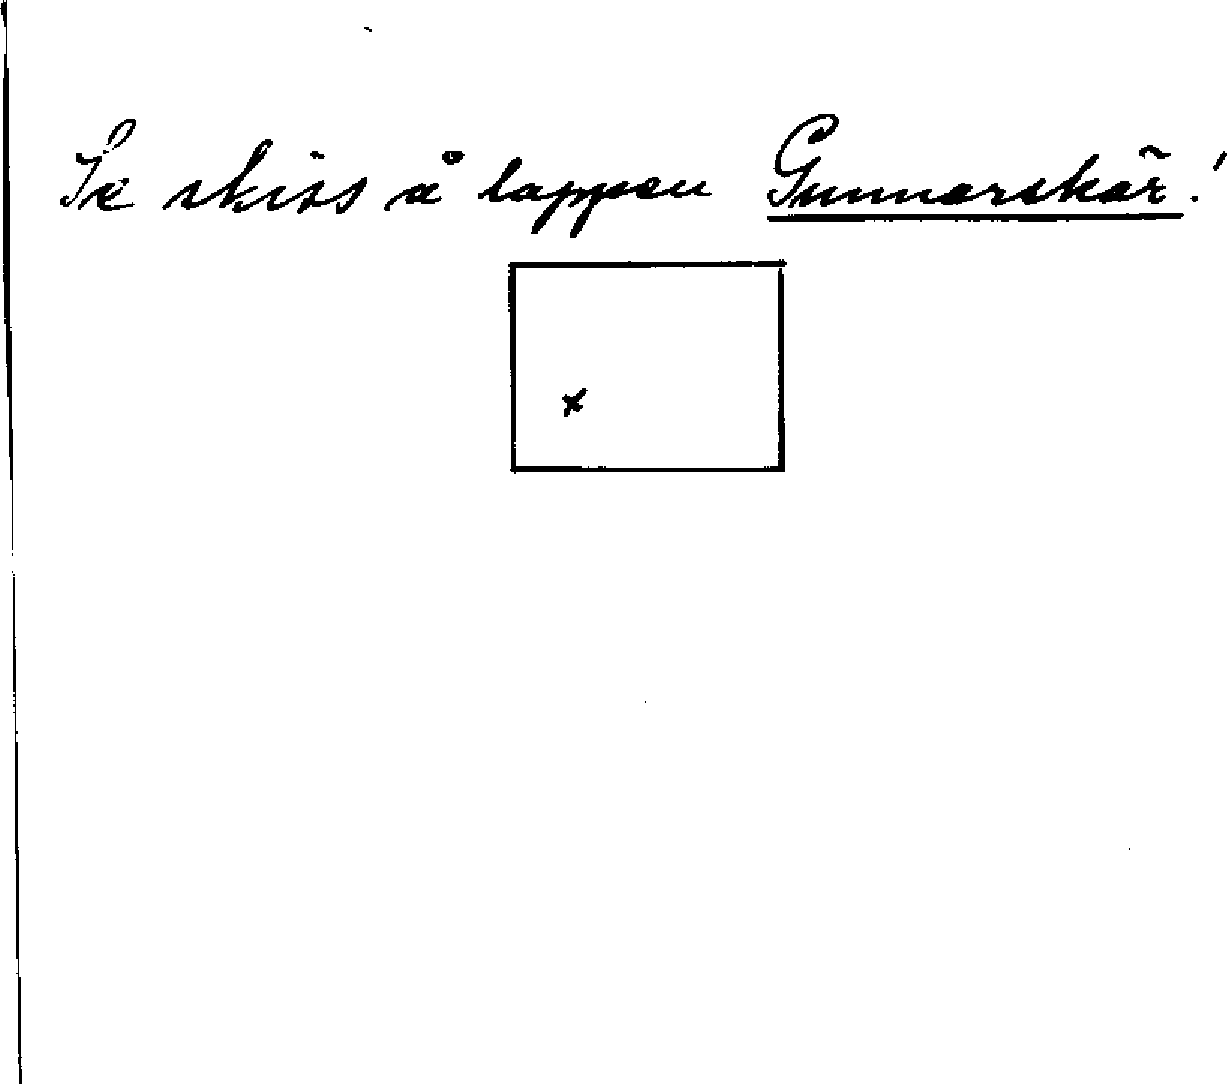 Se skiss å lappen Gunnarskär!
x